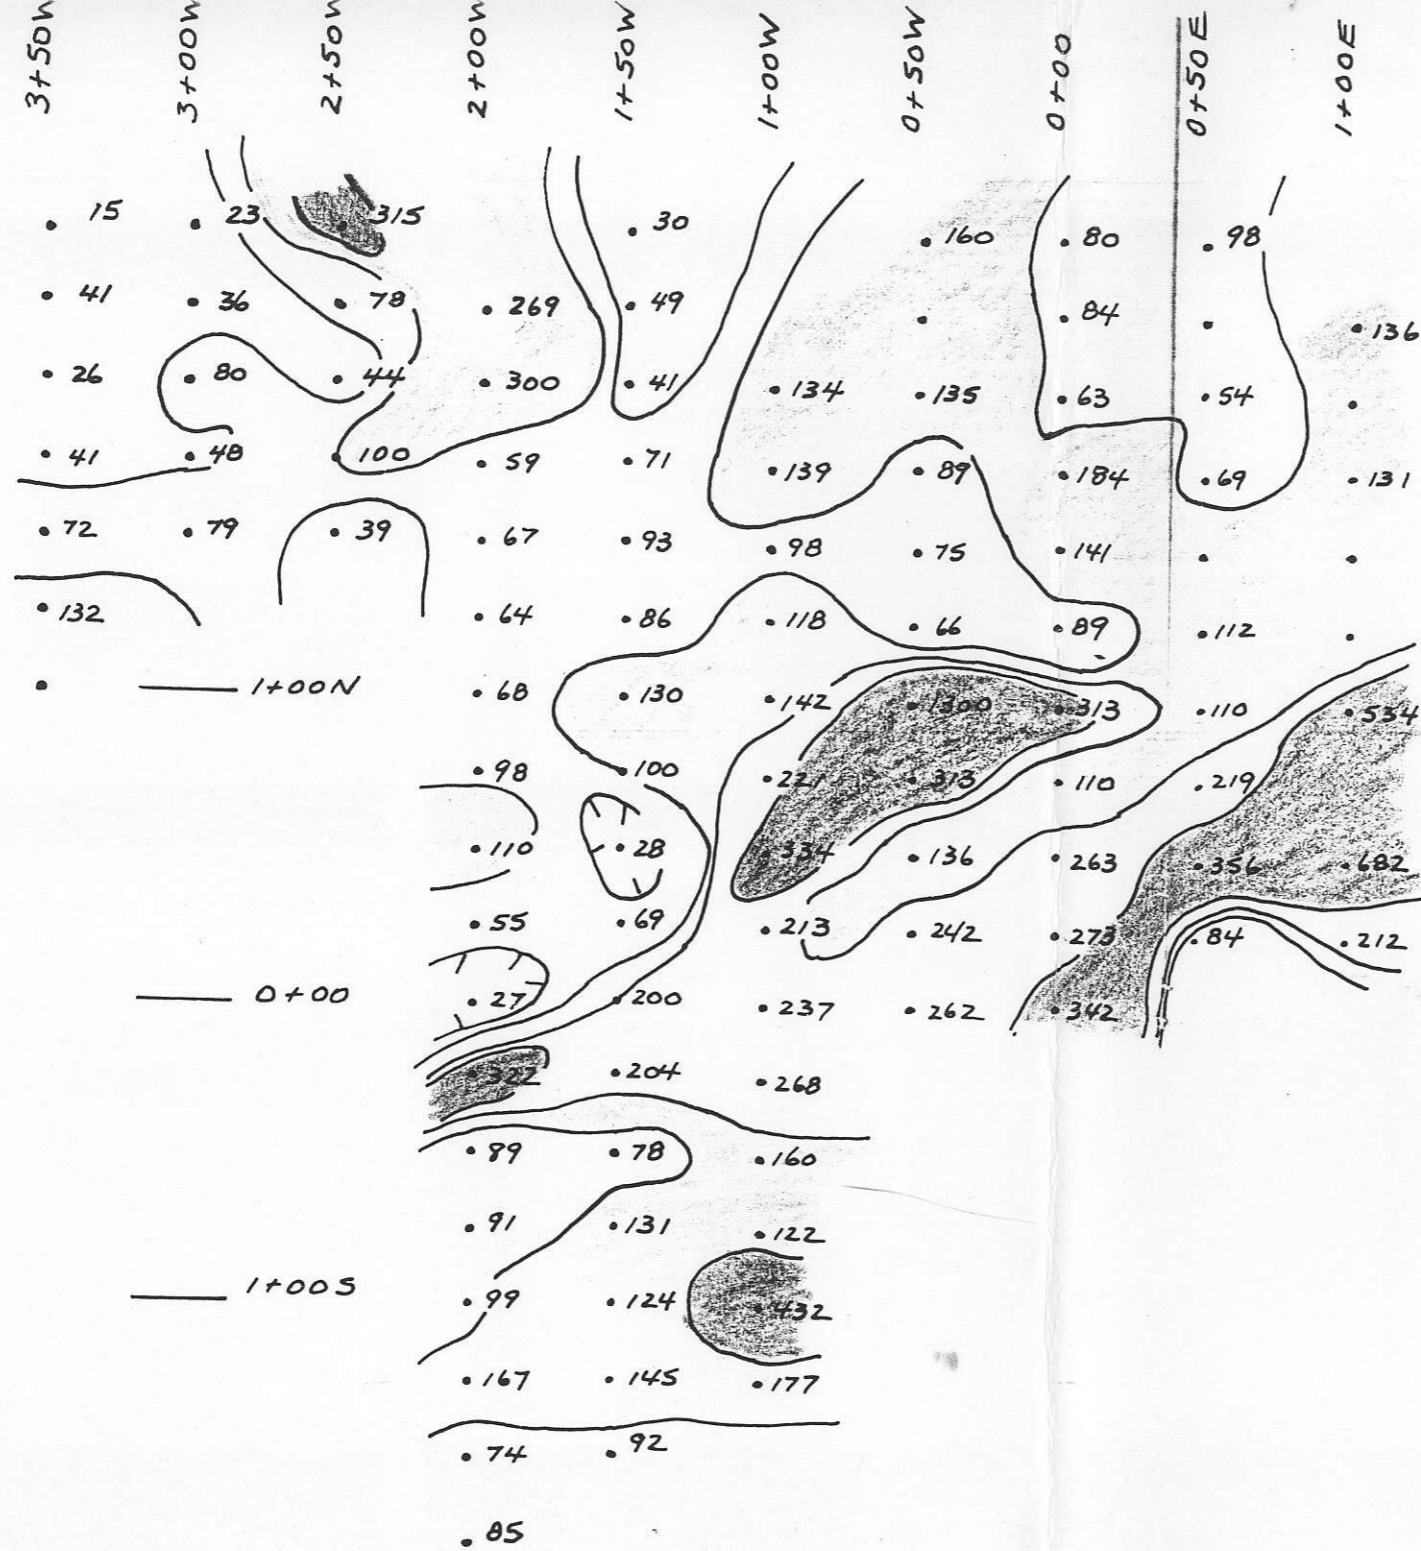 3+50W 3+00W 2+50W 2+00W 1+50W 1+00W 0+50W 0+00 0+50E 1+00E
15 23 315 30 160 80 98
41 36 78 269 49 84 136
26 80 44 300 41 134 135 63 54
41 48 100 59 71 139 89 184 69 131
72 79 39 67 93 98 75 141
132 64 86 118 66 89 112
1+00N 68 130 142 1300 313 110 534
98 100 221 313 110 219
110 28 334 136 263 356 682
55 69 213 242 273 84 212
0+00 27 200 237 262 342
322 204 268
89 78 160
91 131 122
1+00S 99 124 432
167 145 177
74 92
85